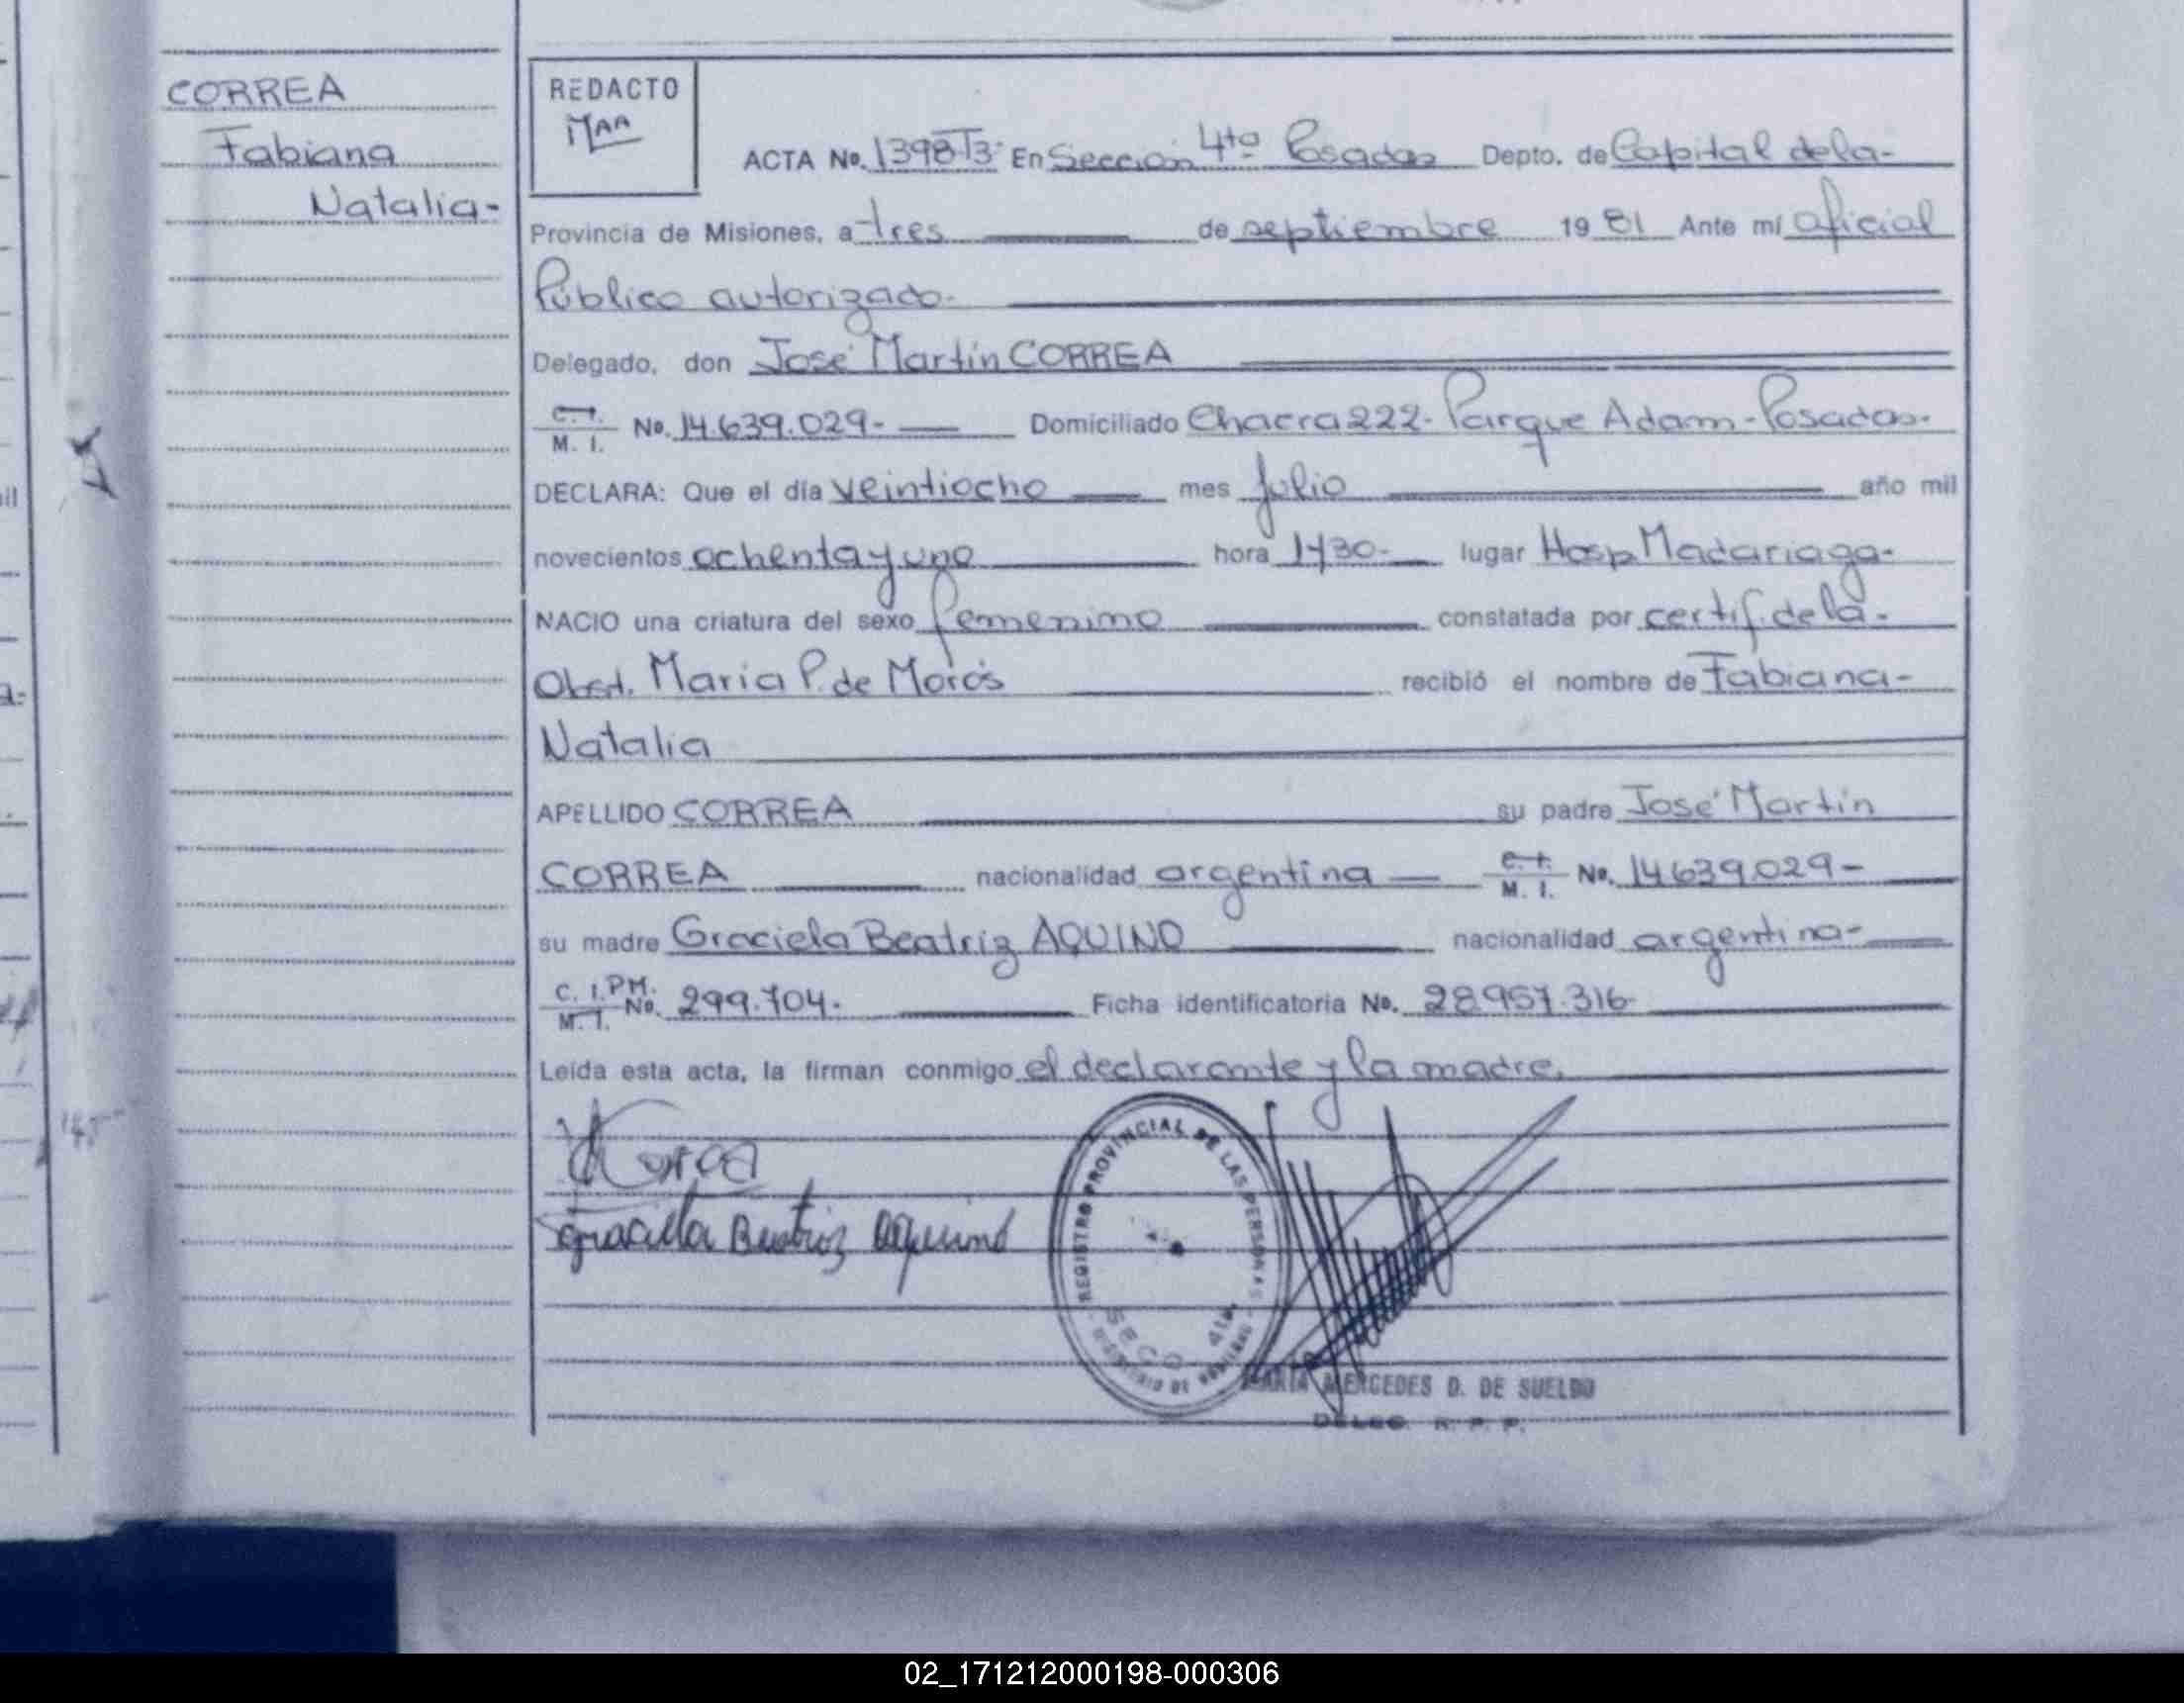 CORREA
Fabiana
Natalia-
REDACTO
ACTA No. 1398T3- En Sección 4ta Posadas Depto. de Capital de la-
Provincia de Misiones, a tres de septiembre 1981 Ante mí oficial
Público autorizado-
Delegado, don José Martín CORREA
C. I. M. I. No. 14.639.029- Domiciliado Chacra 222- Parque Adam - Posadas-
DECLARA: Que el día veintiocho mes julio año mil
novecientos ochenta y uno hora lugar Hosp Madariaga-
NACIO una criatura del sexo femenino constatada por certif. de la-
Obst. Maria P. de recibió el nombre de Fabiana-
Natalia
APELLIDO CORREA su padre José Martín
CORREA nacionalidad argentina C. I. M. I. No. 14639029-
su madre Graciela Beatriz AQUINO nacionalidad argentina-
C. I. PM. M. I. No. 299.704. Ficha identificatoria No. 28.957.316-
Leída esta acta, la firman conmigo el declarante y la madre.
Correa
Graciela Beatriz Aquino
REGISTRO PROVINCIAL DE LAS PERSONAS
SECC 4ta.
MINISTERIO DE GOBIERNO
MARIA MERCEDES D. DE SUELDO
DELEG. R. P. P.
02_171212000198-000306